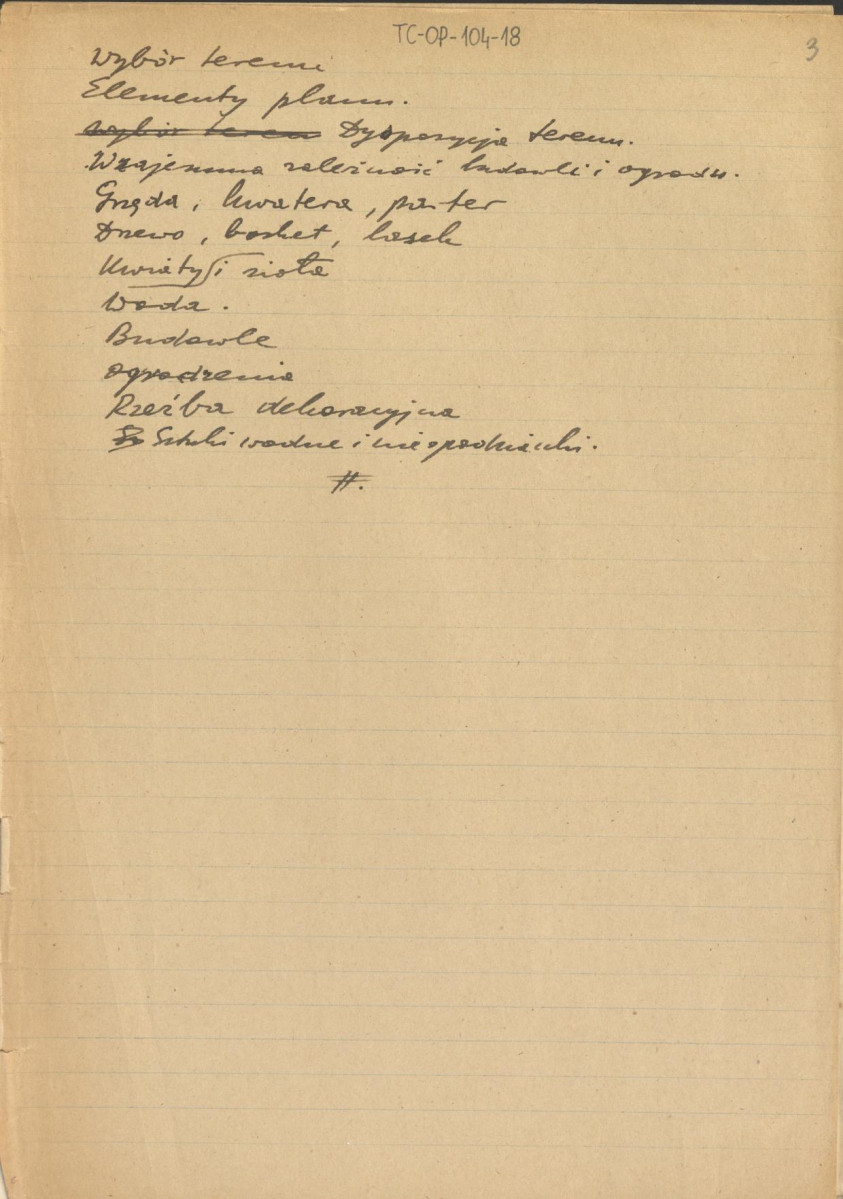 TC-OP-104-18
3
Wybór terenu
Elementy planu.
wybór teren Dyspozycja terenu.
Wzajemna zależność budowli i ogrodu.
Grzęda, kwatera, parter
Drzewo, bosket, lasek
Kwiaty i zioła
Woda.
Budowle
ogrodzenia
Rzeźba dekoracyjna
Sztuki wodne i niespodzianki.
#.